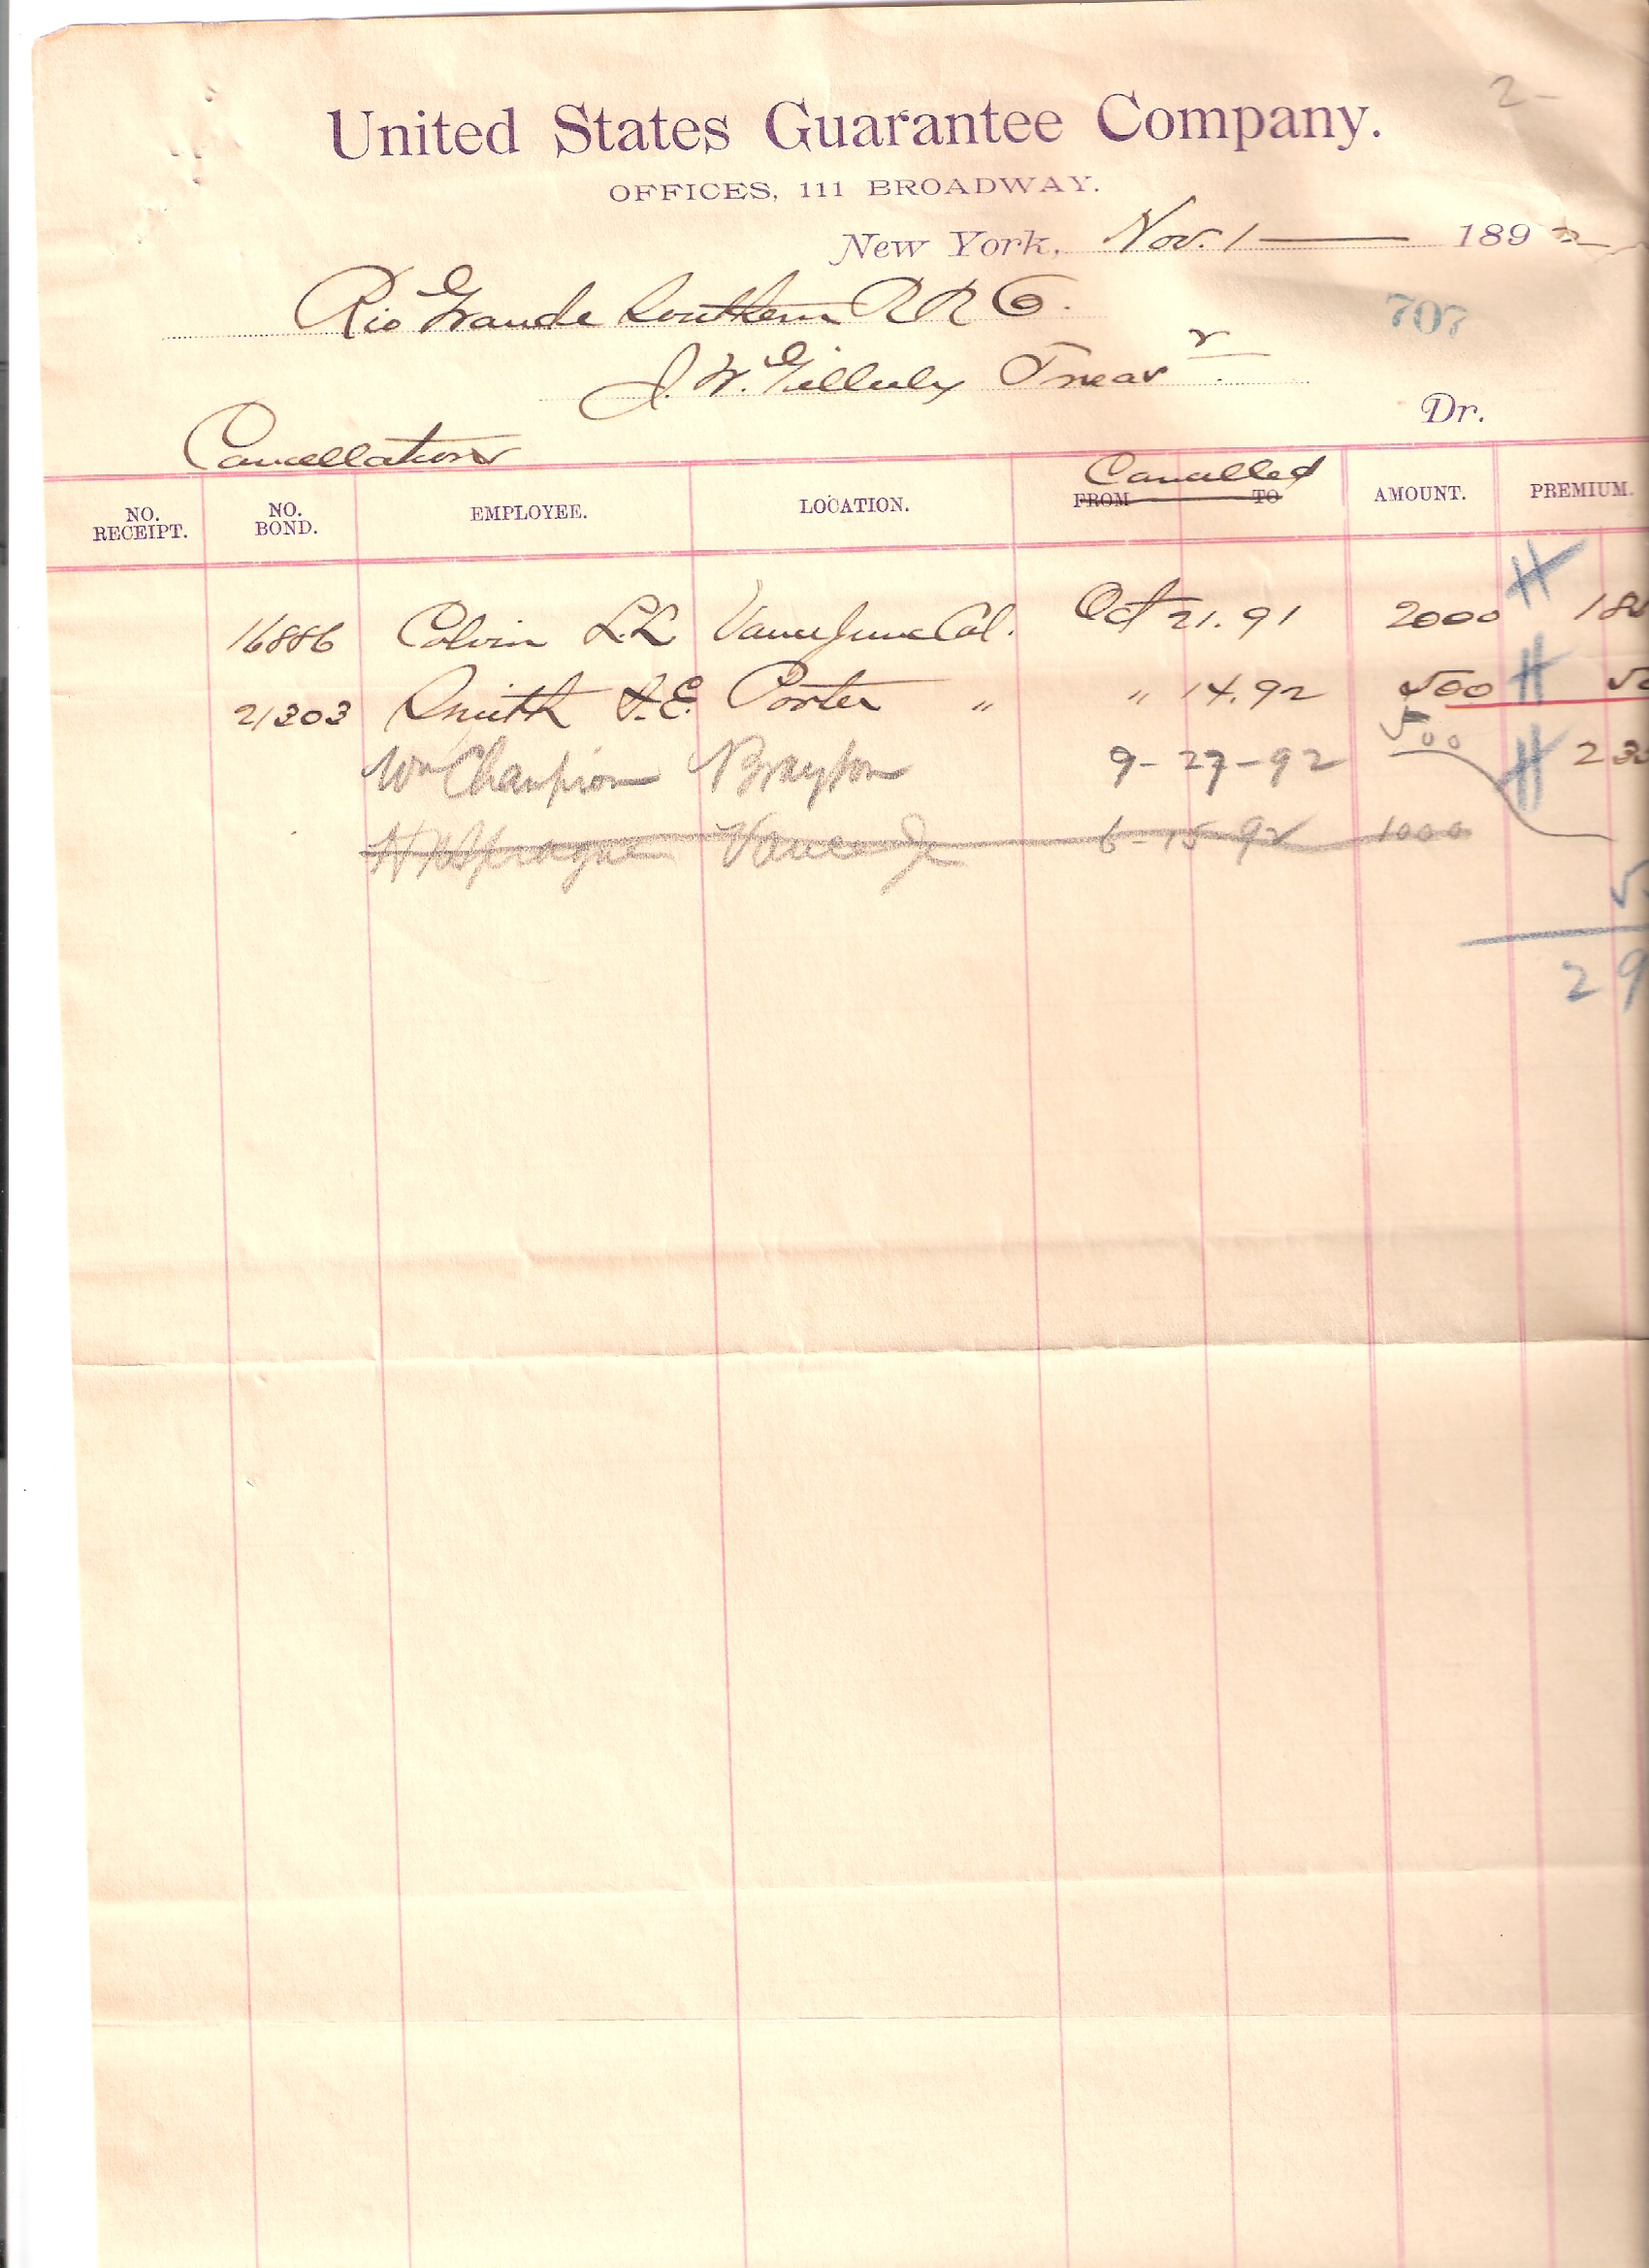 2-
United States Guarantee Company.
OFFICES, 111 BROADWAY.
New York, Nov. 1 189 2
Rio Grande Southern R R Co.
707
J. W. Gilluly Treasr.
Dr.
Cancellations
Cancelled
NO. RECEIPT. NO. BOND. EMPLOYEE. LOCATION. FROM TO AMOUNT. PREMIUM.
16886 Colvin L.L. Vance Junc Col. Oct 21. 91 2000 18
21303 Smith F.E. Porter " " 14. 92 500
Wm Champion Brayton 9-27-92 500 23
Sprague Vance J 6-15-92 1000
29